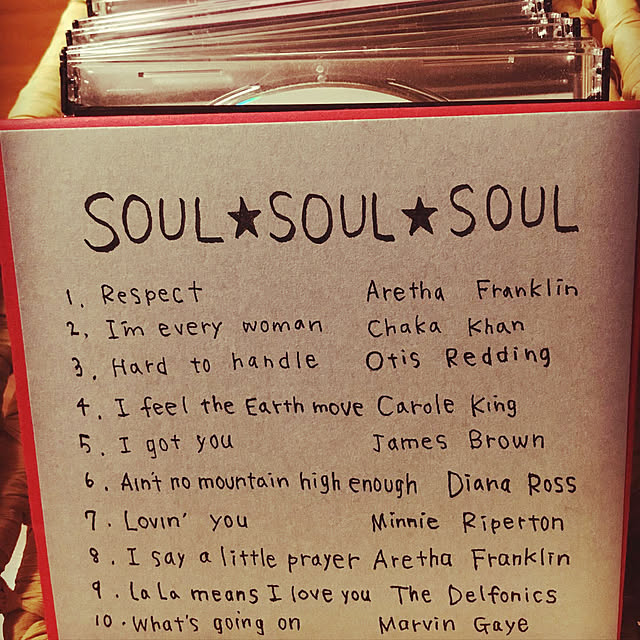 SOUL★SOUL★SOUL
1. Respect Aretha Franklin
2. I'm every woman Chaka Khan
3. Hard to handle Otis Redding
4. I feel the Earth move Carole King
5. I got you James Brown
6. Ain't no mountain high enough Diana Ross
7. Lovin' you Minnie Riperton
8. I say a little prayer Aretha Franklin
9. La La means I love you The Delfonics
10. What's going on Marvin Gaye